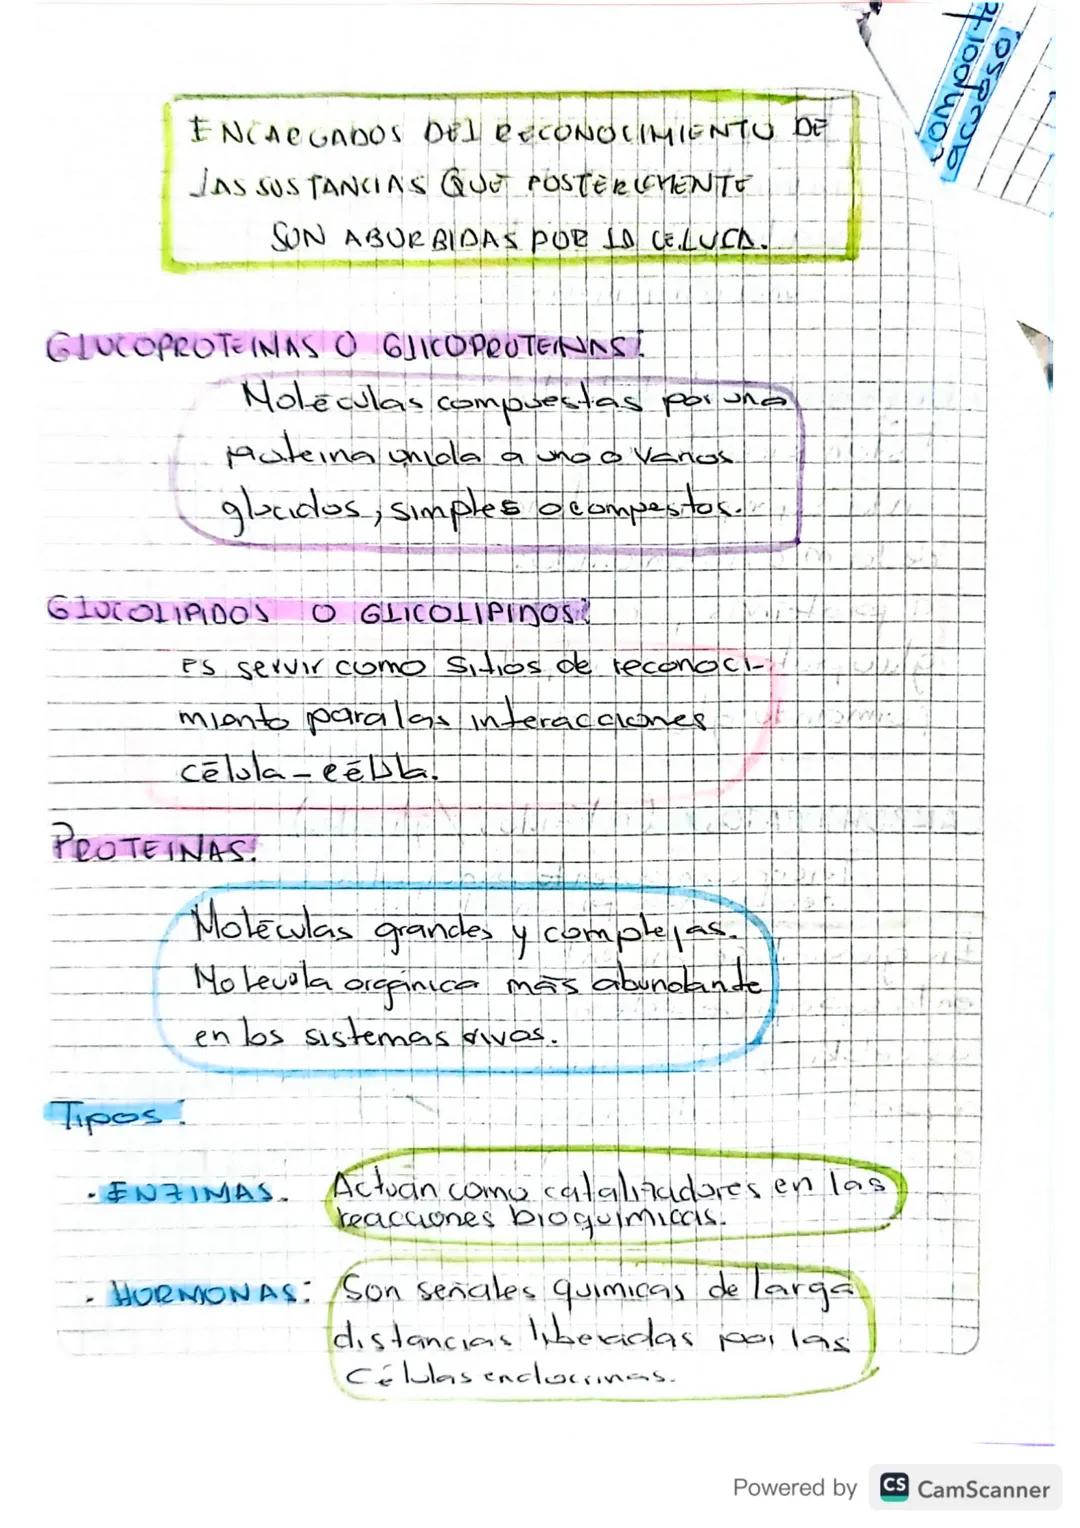 ENCARGADOS DEL RECONOCIMIENTO DE
LAS SUSTANCIAS QUE POSTERIRMENTE
SON ABORBIDAS POR LA CELULA.
GLUCOPROTEINAS O GLICOPROTEINAS:
Moléculas compuestas por una
proteina unida a uno o varios
glucidos, simples o compestos.
GLUCOLIPIDOS O GLICOLIPIDOS:
Es servir como sitios de reconoci-
miento para las interacciones
célula - célula.
PROTEINAS:
Moléculas grandes y complejas.
Molecula orgánica más abundante
en los sistemas vivos.
Tipos:
• ENZIMAS. Actuán como catalizadores en las
reacciones bioquimicas.
• HORMONAS: Son señales quimicas de larga
distancias liberadas por las
Células endocrinas.
Powered by CS CamScanner